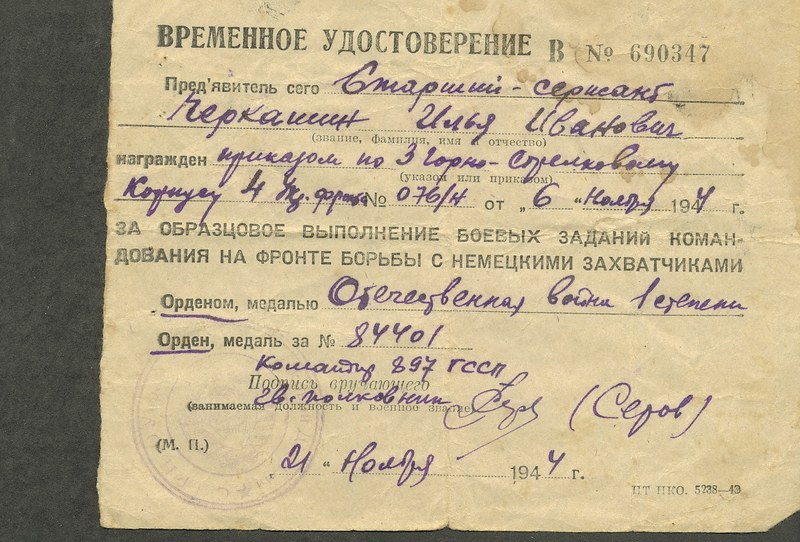 ВРЕМЕННОЕ УДОСТОВЕРЕНИЕ В № 690347
Пред'явитель сего Старший-сержант
Черкашин Илья Иванович
(звание, фамилия, имя и отчество)
награжден приказом по 3 Горно-стрелковому
(указом или приказом)
Корпусу 4 Укр. фронта № 076/н от „6 “ Ноября 1944 г.
ЗА ОБРАЗЦОВОЕ ВЫПОЛНЕНИЕ БОЕВЫХ ЗАДАНИЙ КОМАН-
ДОВАНИЯ НА ФРОНТЕ БОРЬБЫ С НЕМЕЦКИМИ ЗАХВАТЧИКАМИ
Орденом, медалью Отечественная война 1 степени
Орден, медаль за № 84401
Командир 897 ГССП
Подпись вручающего
гв. полковник (Серов)
(занимаемая должность и военное звание)
(М. П.)
„21 “ Ноября 1944 г.
ЦТ НКО. 5238—43